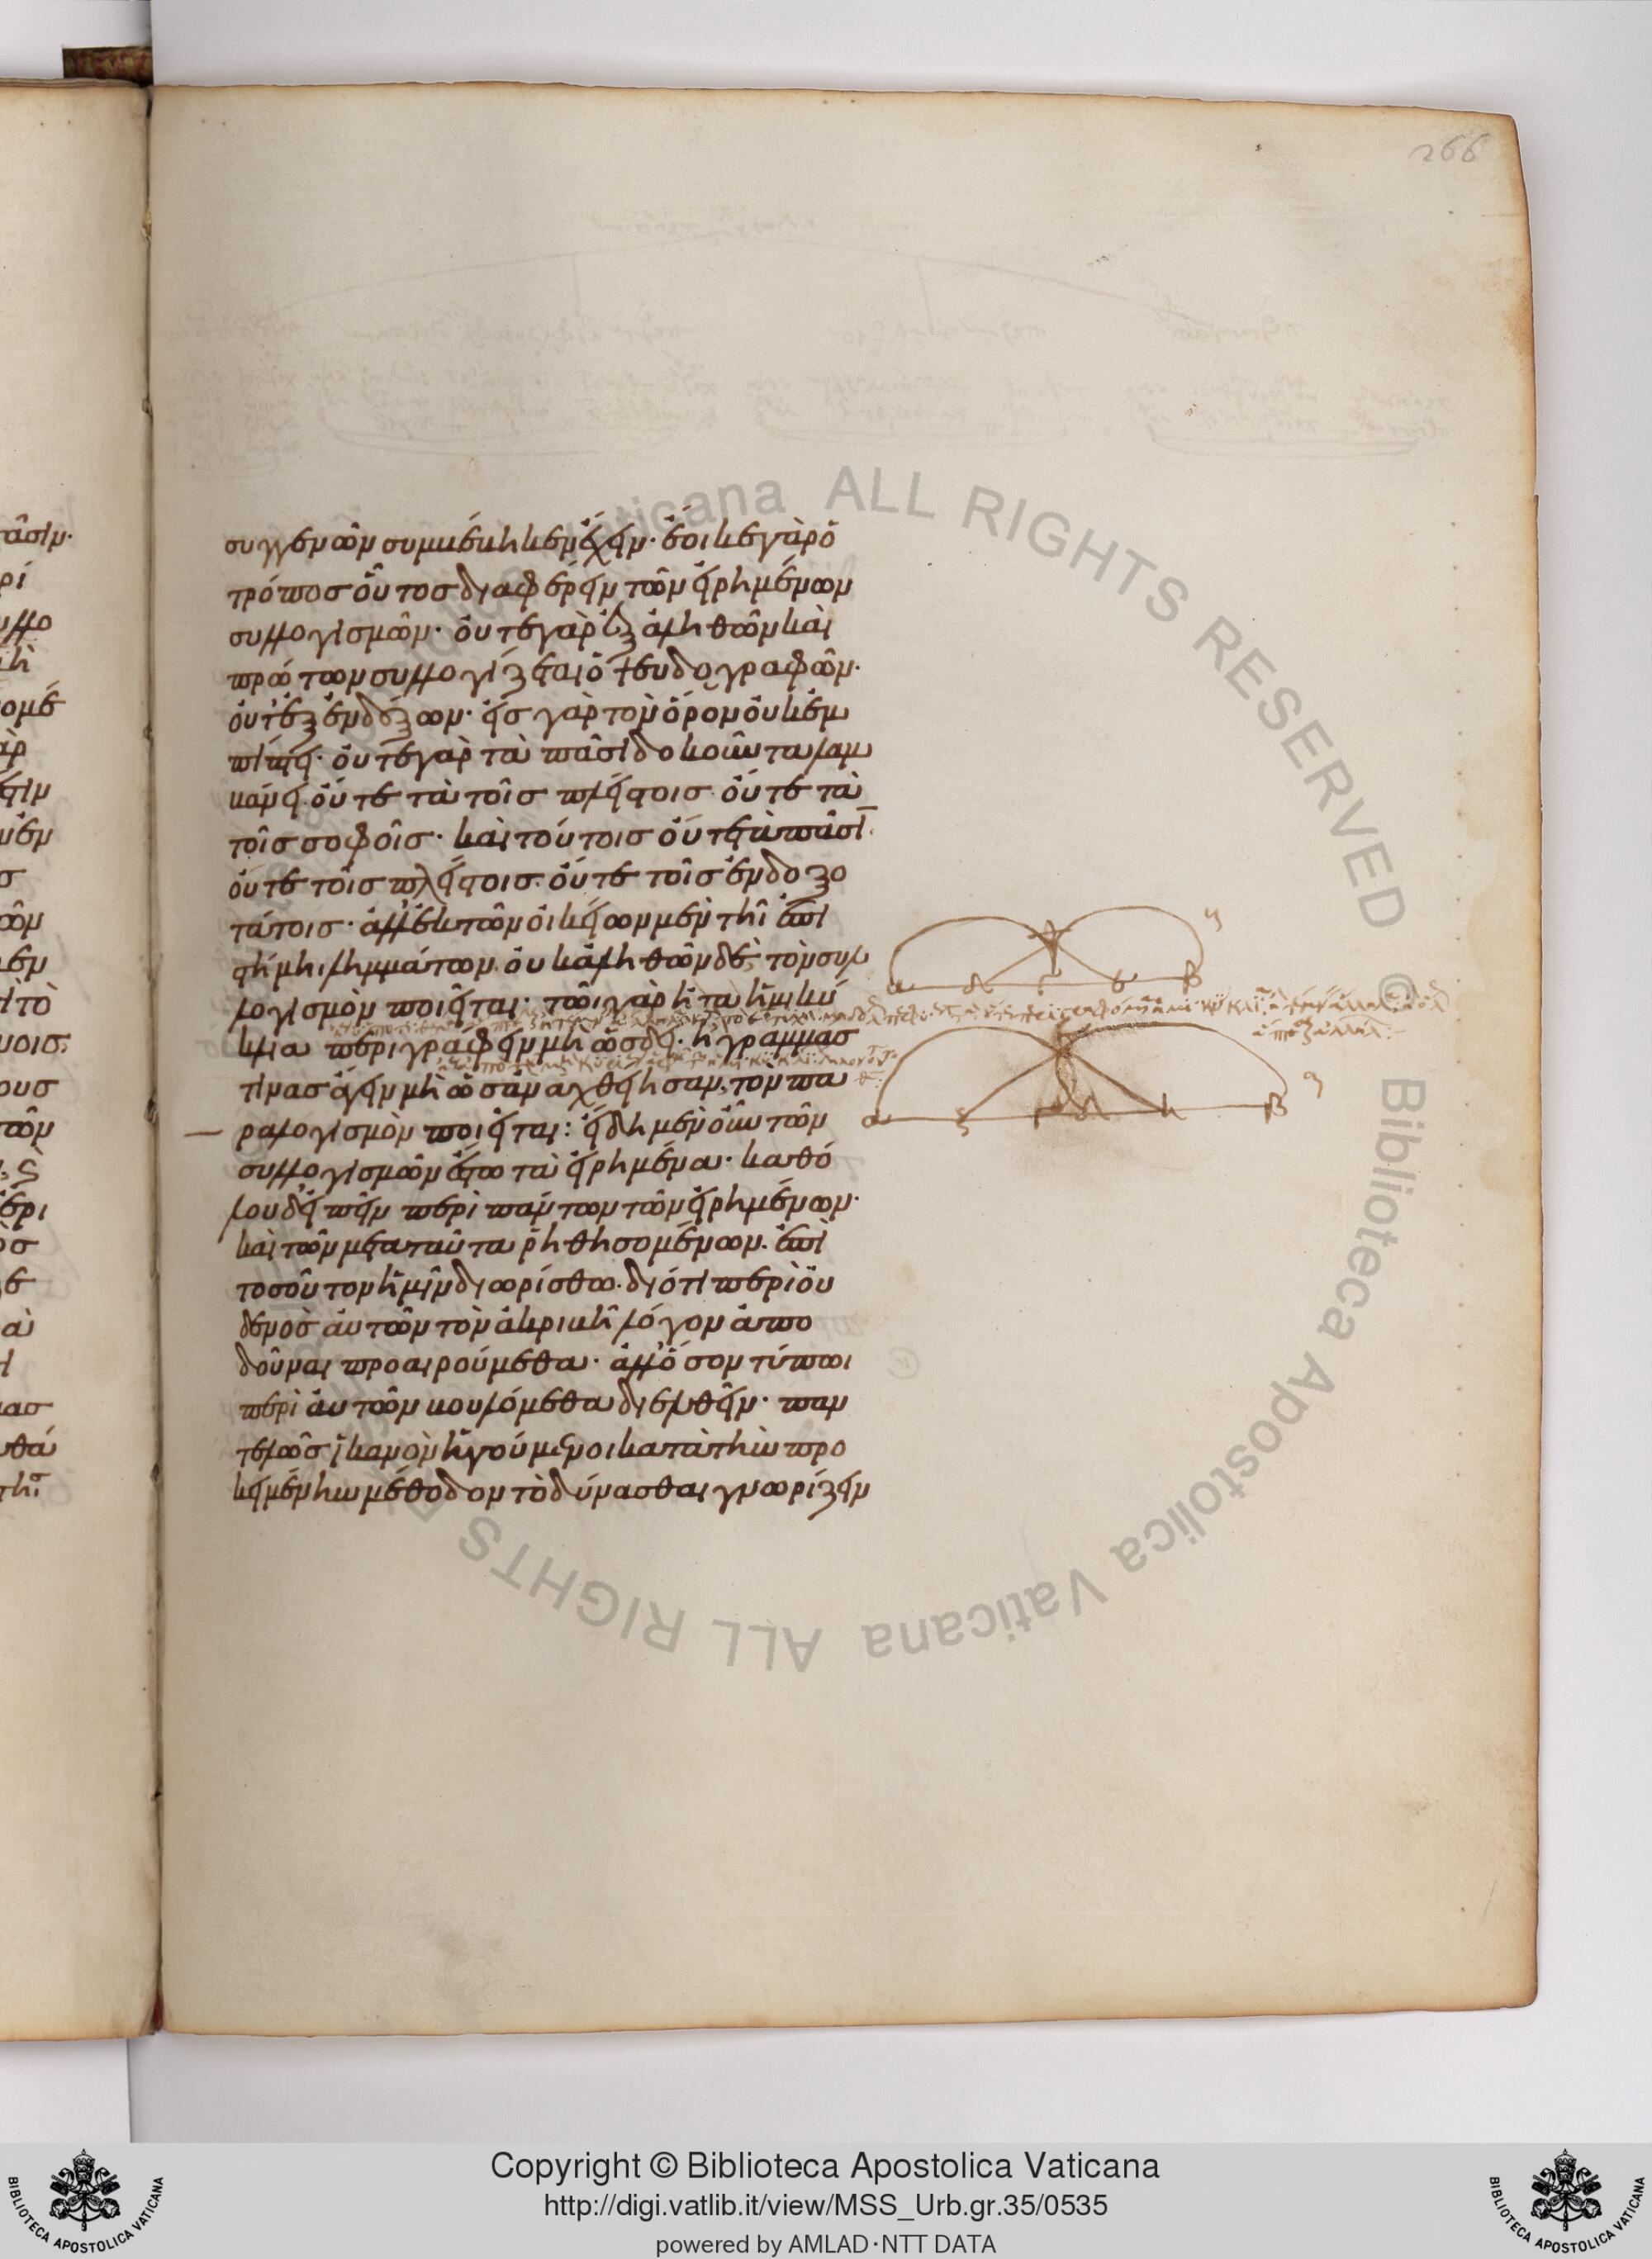 266
συγγενῶν συμβέβηκεν ἔχειν· ἔοικε γὰρ ὁ
τρόπος οὗτος διαφέρειν τῶν εἰρημένων
συλλογισμῶν· οὔτε γὰρ ἐξ ἀληθῶν καὶ
πρώτων συλλογίζεται ὁ ψευδογραφῶν·
οὔτ' ἐξ ἐνδόξων· εἰς γὰρ τὸν ὅρον οὐκ ἐμ
πίπτει· οὔτε γὰρ τὰ πᾶσι δοκοῦντα λαμ
βάνει· οὔτε τὰ τοῖς πλείστοις· οὔτε τὰ
τοῖς σοφοῖς· καὶ τούτοις οὔτε τὰ πᾶσιν·
οὔτε τοῖς πλείστοις· οὔτε τοῖς ἐνδοξο
τάτοις· ἀλλ' ἐκ τῶν οἰκείων μὲν τῆι ἐπι
στήμηι λημμάτων· οὐκ ἀληθῶν δὲ, τὸν συλ
λογισμὸν ποιεῖται· τῶι γὰρ ἢ τὰ ἡμικύ
κλια περιγράφειν μὴ ὡς δεῖ· ἢ γραμμάς
τινας ἄγειν μὴ ὡς ἂν ἀχθείησαν, τὸν πα
ραλογισμὸν ποιεῖται: εἴδη μὲν οὖν τῶν
συλλογισμῶν ἔστω τὰ εἰρημένα· καθό
λου δ' εἰπεῖν περὶ πάντων τῶν εἰρημένων·
καὶ τῶν μετὰ ταῦτα ῥηθησομένων· ἐπὶ
τοσοῦτον ἡμῖν διωρίσθω· διότι περὶ οὐ
δενὸς αὐτῶν τὸν ἀκριβῆ λόγον ἀπο
δοῦναι προαιρούμεθα· ἀλλ' ὅσον τύπωι
περὶ αὐτῶν βουλόμεθα διελθεῖν· παν
τελῶς ἱκανὸν ἡγούμενοι κατὰ τὴν προ
κειμένην μέθοδον τὸ δύνασθαι γνωρίζειν
Copyright © Biblioteca Apostolica Vaticana
http://digi.vatlib.it/view/MSS_Urb.gr.35/0535
powered by AMLAD·NTT DATA
BIBLIOTECA APOSTOLICA VATICANA
BIBLIOTECA APOSTOLICA VATICANA